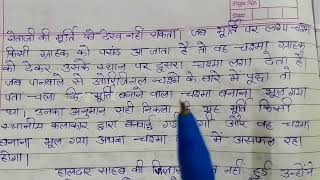 नेताजी की मूर्ति को देख नहीं सकता। जब मूर्ति पर लगा चश्मा
किसी ग्राहक को पसंद आ जाता है तो वह चश्मा ग्राहक
को देकर उसके स्थान पर दूसरा चश्मा लगा देता है।
जब पानवाले से ओरिजिनल चश्मे के बारे में पूछा तो
पता चला कि मूर्ति बनाने वाला चश्मा बनाना भूल गया
था। उनका अनुमान सही निकला। यह मूर्ति किसी
स्थानीय कलाकार द्वारा बनवाई गई और वह चश्मा
बनाना भूल गया अथवा चश्मा में असफल रहा
होगा।
हालदार साहब की नहीं हुई उन्होंने